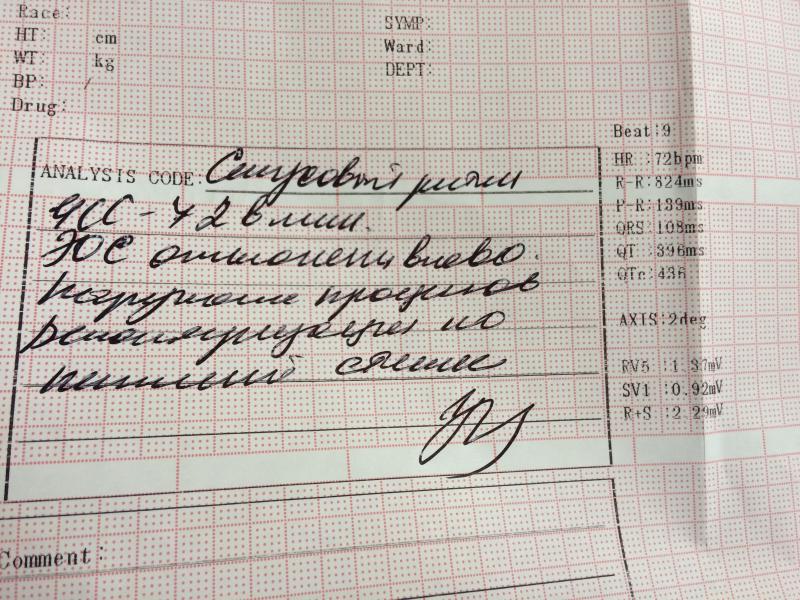 Race:
HT: cm
WT: kg
BP: /
Drug:
SYMP:
Ward:
DEPT:
ANALYSIS CODE: Синусовый ритм
ЧСС - 72 в мин.
ЭОС отклонена влево.
Нарушение процессов
реполяризации по
нижней стенке
Beat:9
HR :72bpm
R-R:824ms
P-R:139ms
QRS:108ms
QT :396ms
QTc:436
AXIS:2deg
RV5 :1.37mV
SV1 :0.92mV
R+S :2.29mV
Comment: